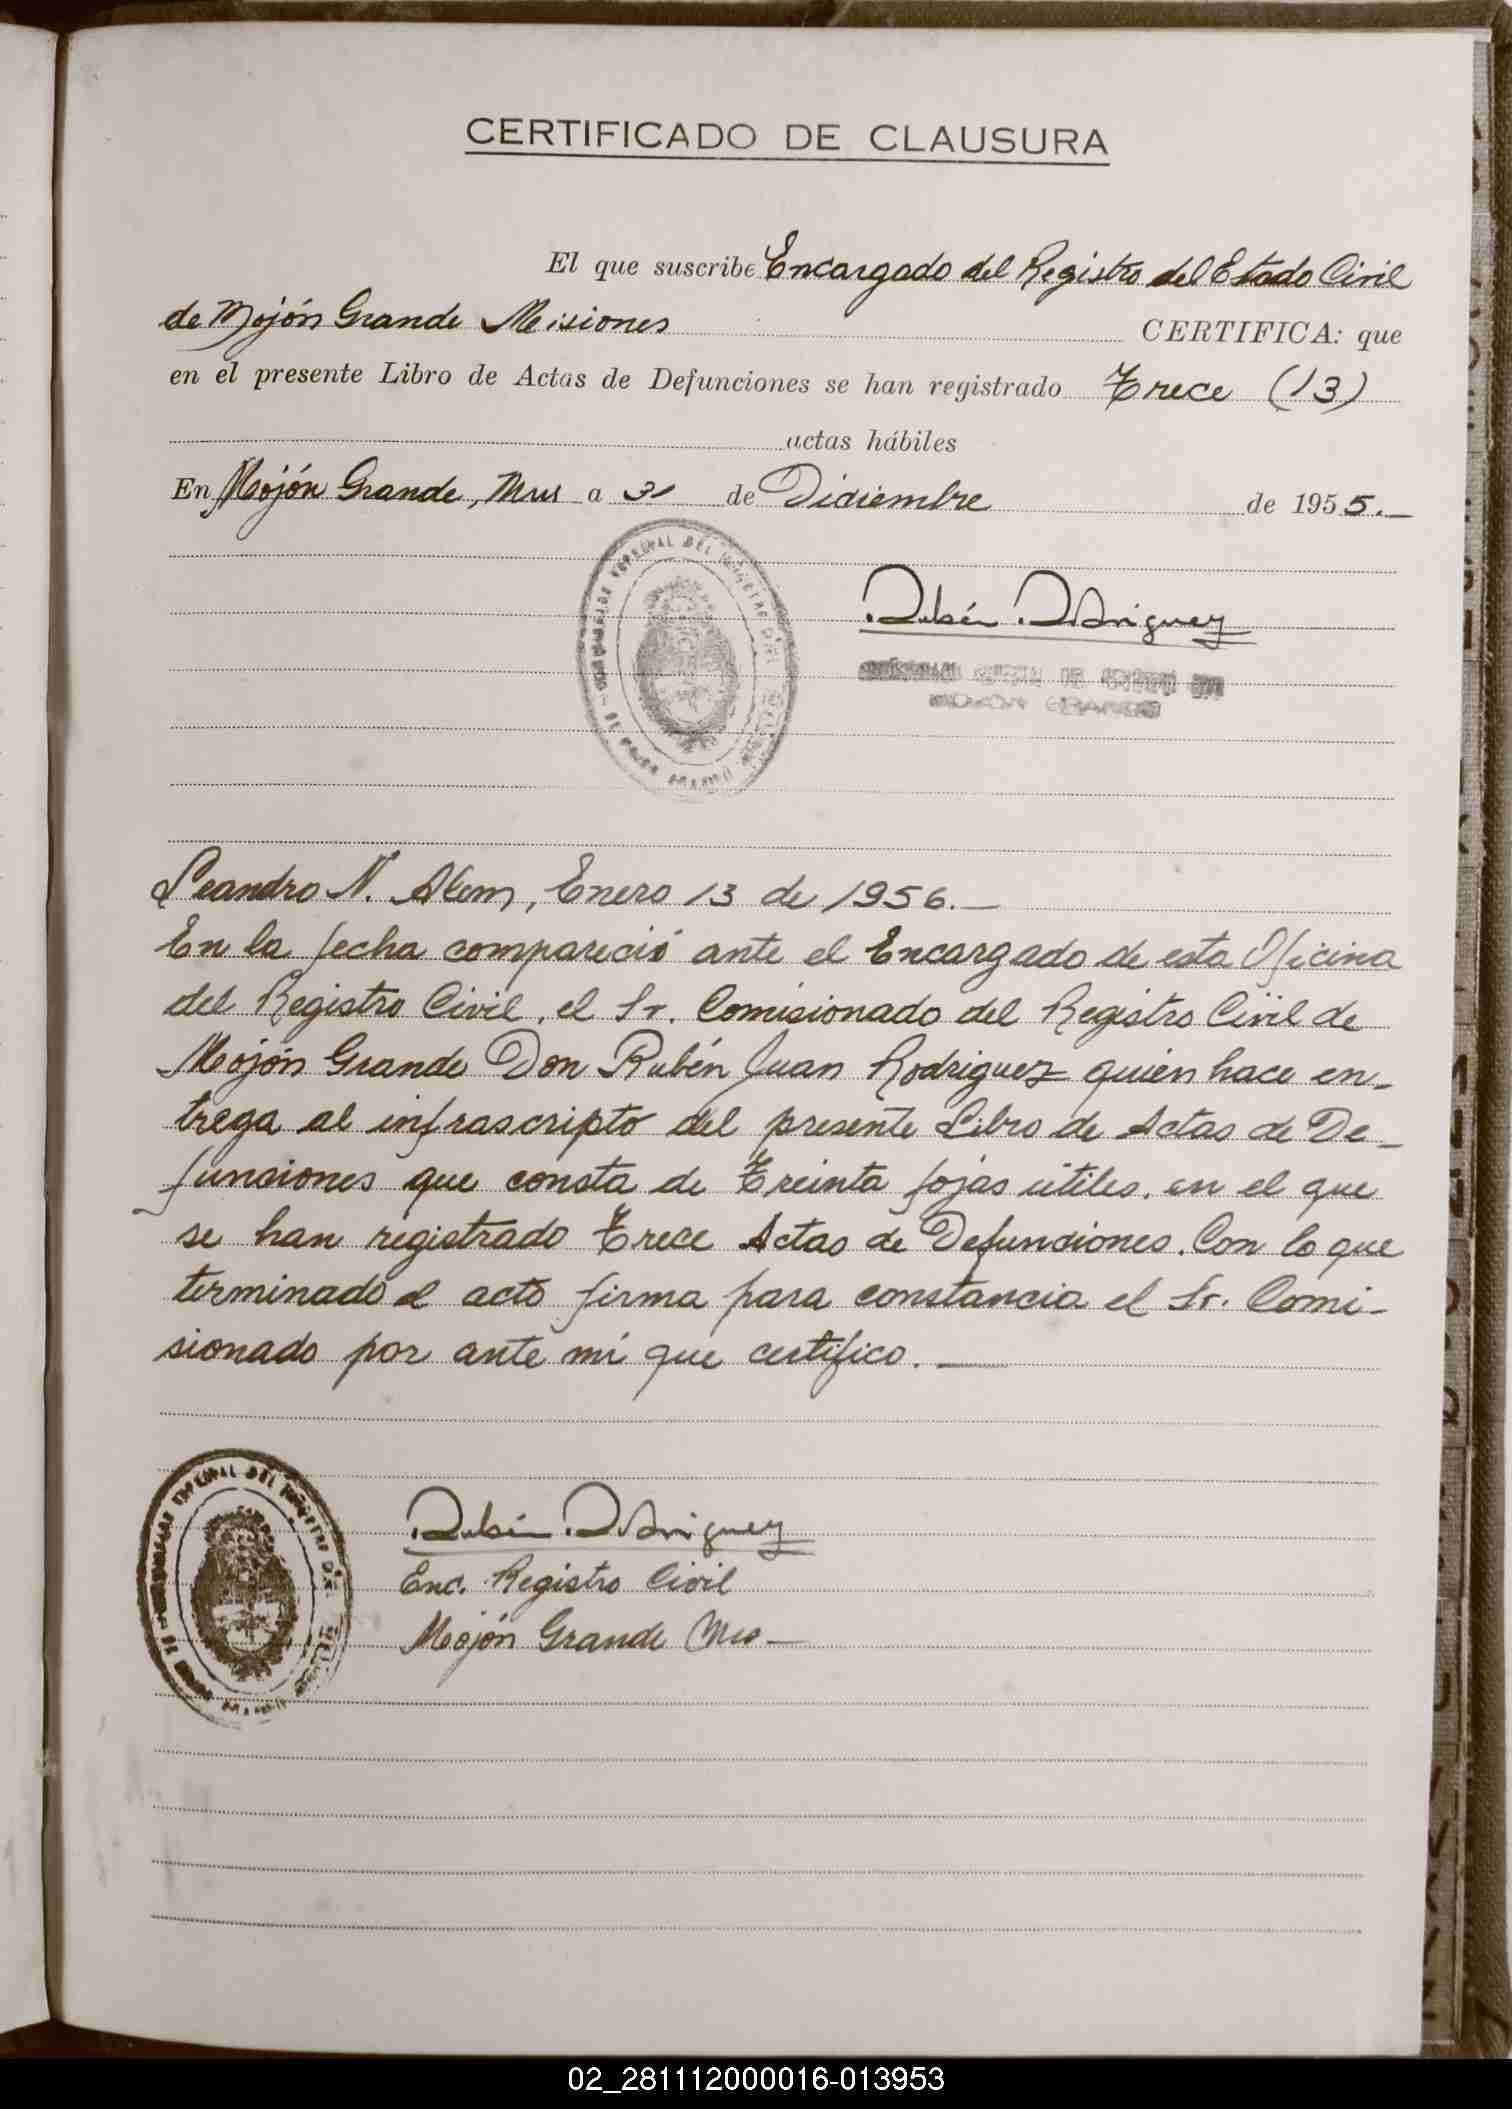 CERTIFICADO DE CLAUSURA
El que suscribe Encargado del Registro del Estado Civil
de Mojón Grande Misiones CERTIFICA: que
en el presente Libro de Actas de Defunciones se han registrado Trece (13)
actas hábiles
En Mojón Grande, Mnes a 31 de Diciembre de 1955.—
Rubén Rodriguez
MOJON GRANDE
Leandro N. Alem, Enero 13 de 1956.—
En la fecha compareció ante el Encargado de esta Oficina
del Registro Civil, el Sr. Comisionado del Registro Civil de
Mojón Grande Don Rubén Juan Rodriguez quién hace en-
trega al infrascripto del presente Libro de Actas de De-
funciones que consta de Treinta fojas útiles, en el que
se han registrado Trece Actas de Defunciones. Con lo que
terminado el acto firma para constancia el Sr. Comi-
sionado por ante mí que certifico.—
Rubén Rodriguez
Enc. Registro Civil
Mojón Grande Mnes—
02_281112000016-013953